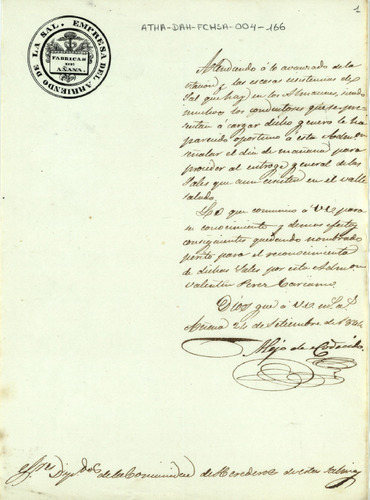 ATHA-DAH-FCHSA-004-166
1
EMPRESA DEL ARRIENDO DE LA SAL.
FABRICAS
DE
AÑANA.
Atendiendo á lo avanzado de la
y las escasas existencias de
Sal que hay en los Almacenes, siendo
muchos los conductores que se pre-
sentan á cargar dicho genero le há
parecido oportuno á esta Admon
señalar el dia de mañana para
proceder al entroge general de las
Sales que aun ecsisten en el valle
salado.
Lo que comunico á VS para
su conocimiento y demas efectos
consiguientes quedando nombrado
perito para el reconocimiento
de dichas Sales por esta Admon
Valentin Perez
Dios gue á VS
Añana 24 de Setiembre de
Alejo de
de la Comunidad de Herederos de estas Salinas